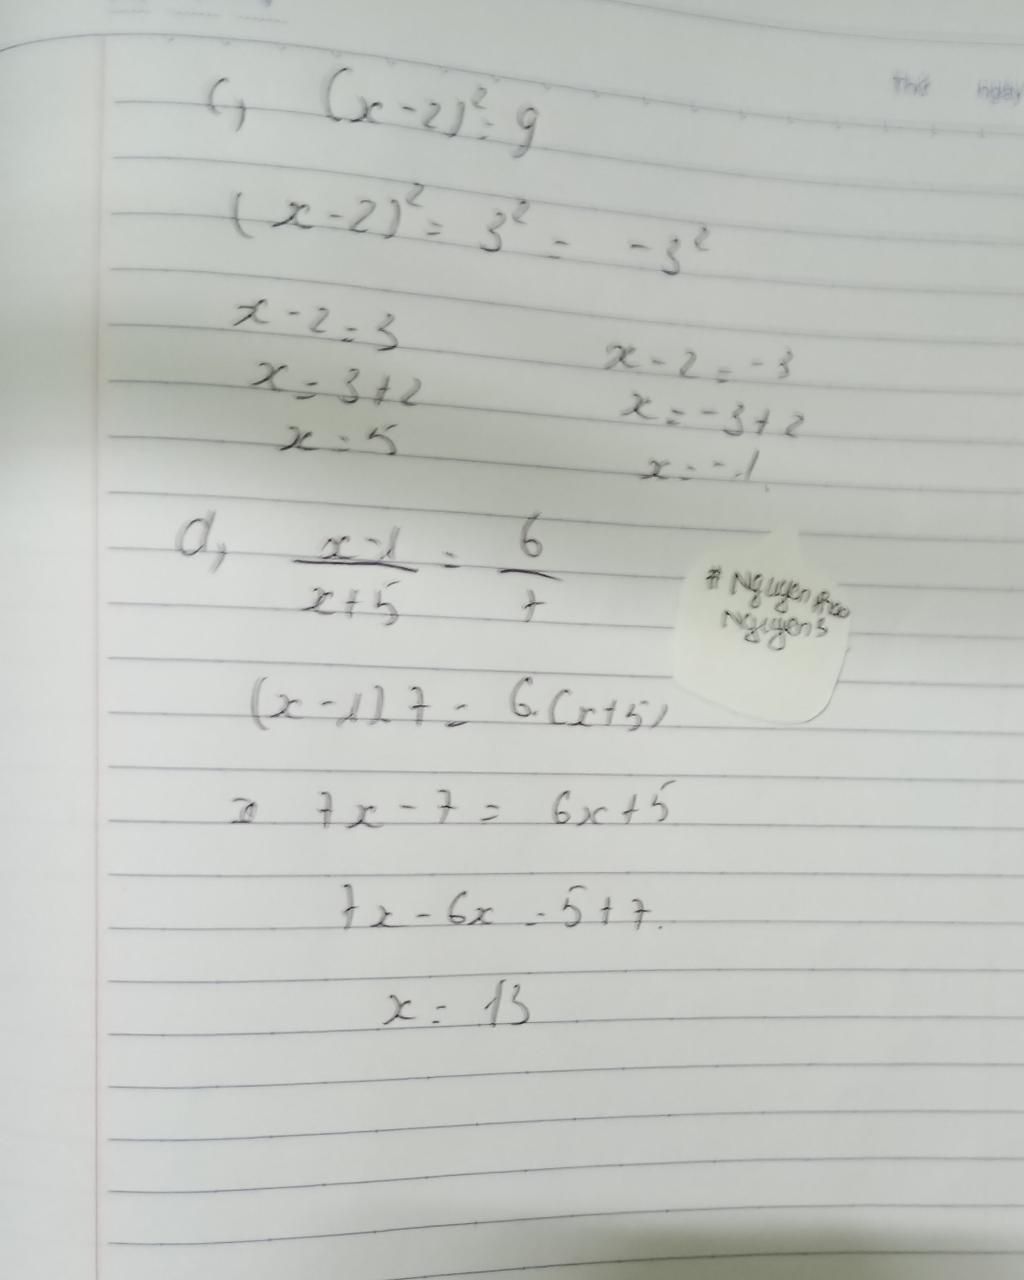 Thứ ngày
c, (x-2)² = 9
(x-2)² = 3² = -3²
x-2=3
x = 3+2
x = 5
x-2 = -3
x = -3+2
x = -1
d, x-1 / x+5 = 6 / 7
# Nguyen
Nguyens
(x-1).7 = 6.(x+5)
7x - 7 = 6x+5
7x - 6x = 5+7.
x = 13